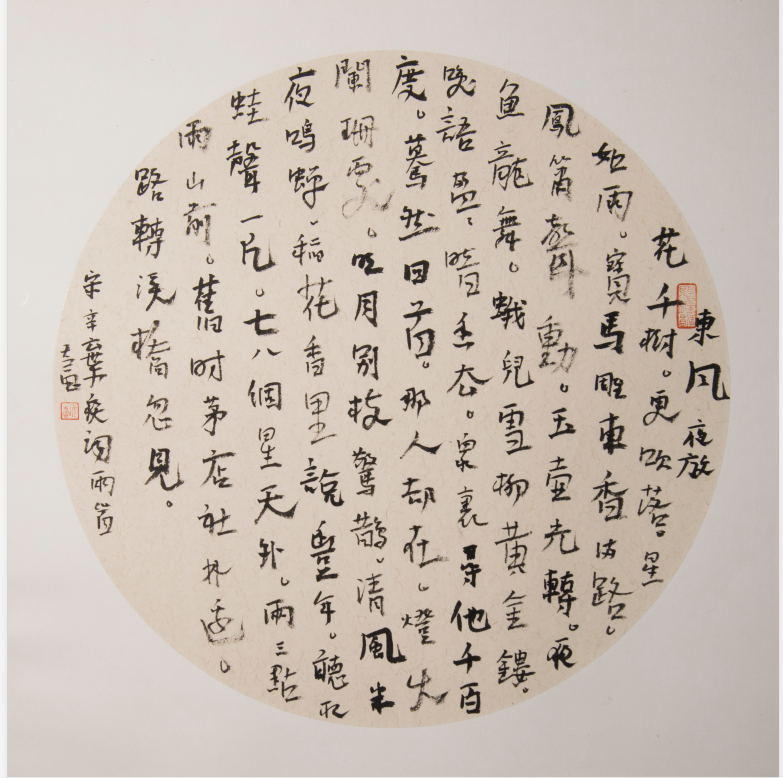 東風夜放
花千樹。更吹落。星
如雨。寶馬雕車香满路。
鳳簫聲動。玉壺光轉。夜
魚龍舞。蛾兒雪柳黄金鏤。
笑語盈、暗香去。衆裏尋他千百
度。驀然回首。那人却在。燈火
闌珊處。明月别枝驚鵲。清風半
夜鳴蟬。稻花香里説豐年。聽取
蛙聲一片。七八個星天外。兩三點
雨山前。舊時茅店社林邊。
路轉溪橋忽見。
宋辛棄疾詞兩首